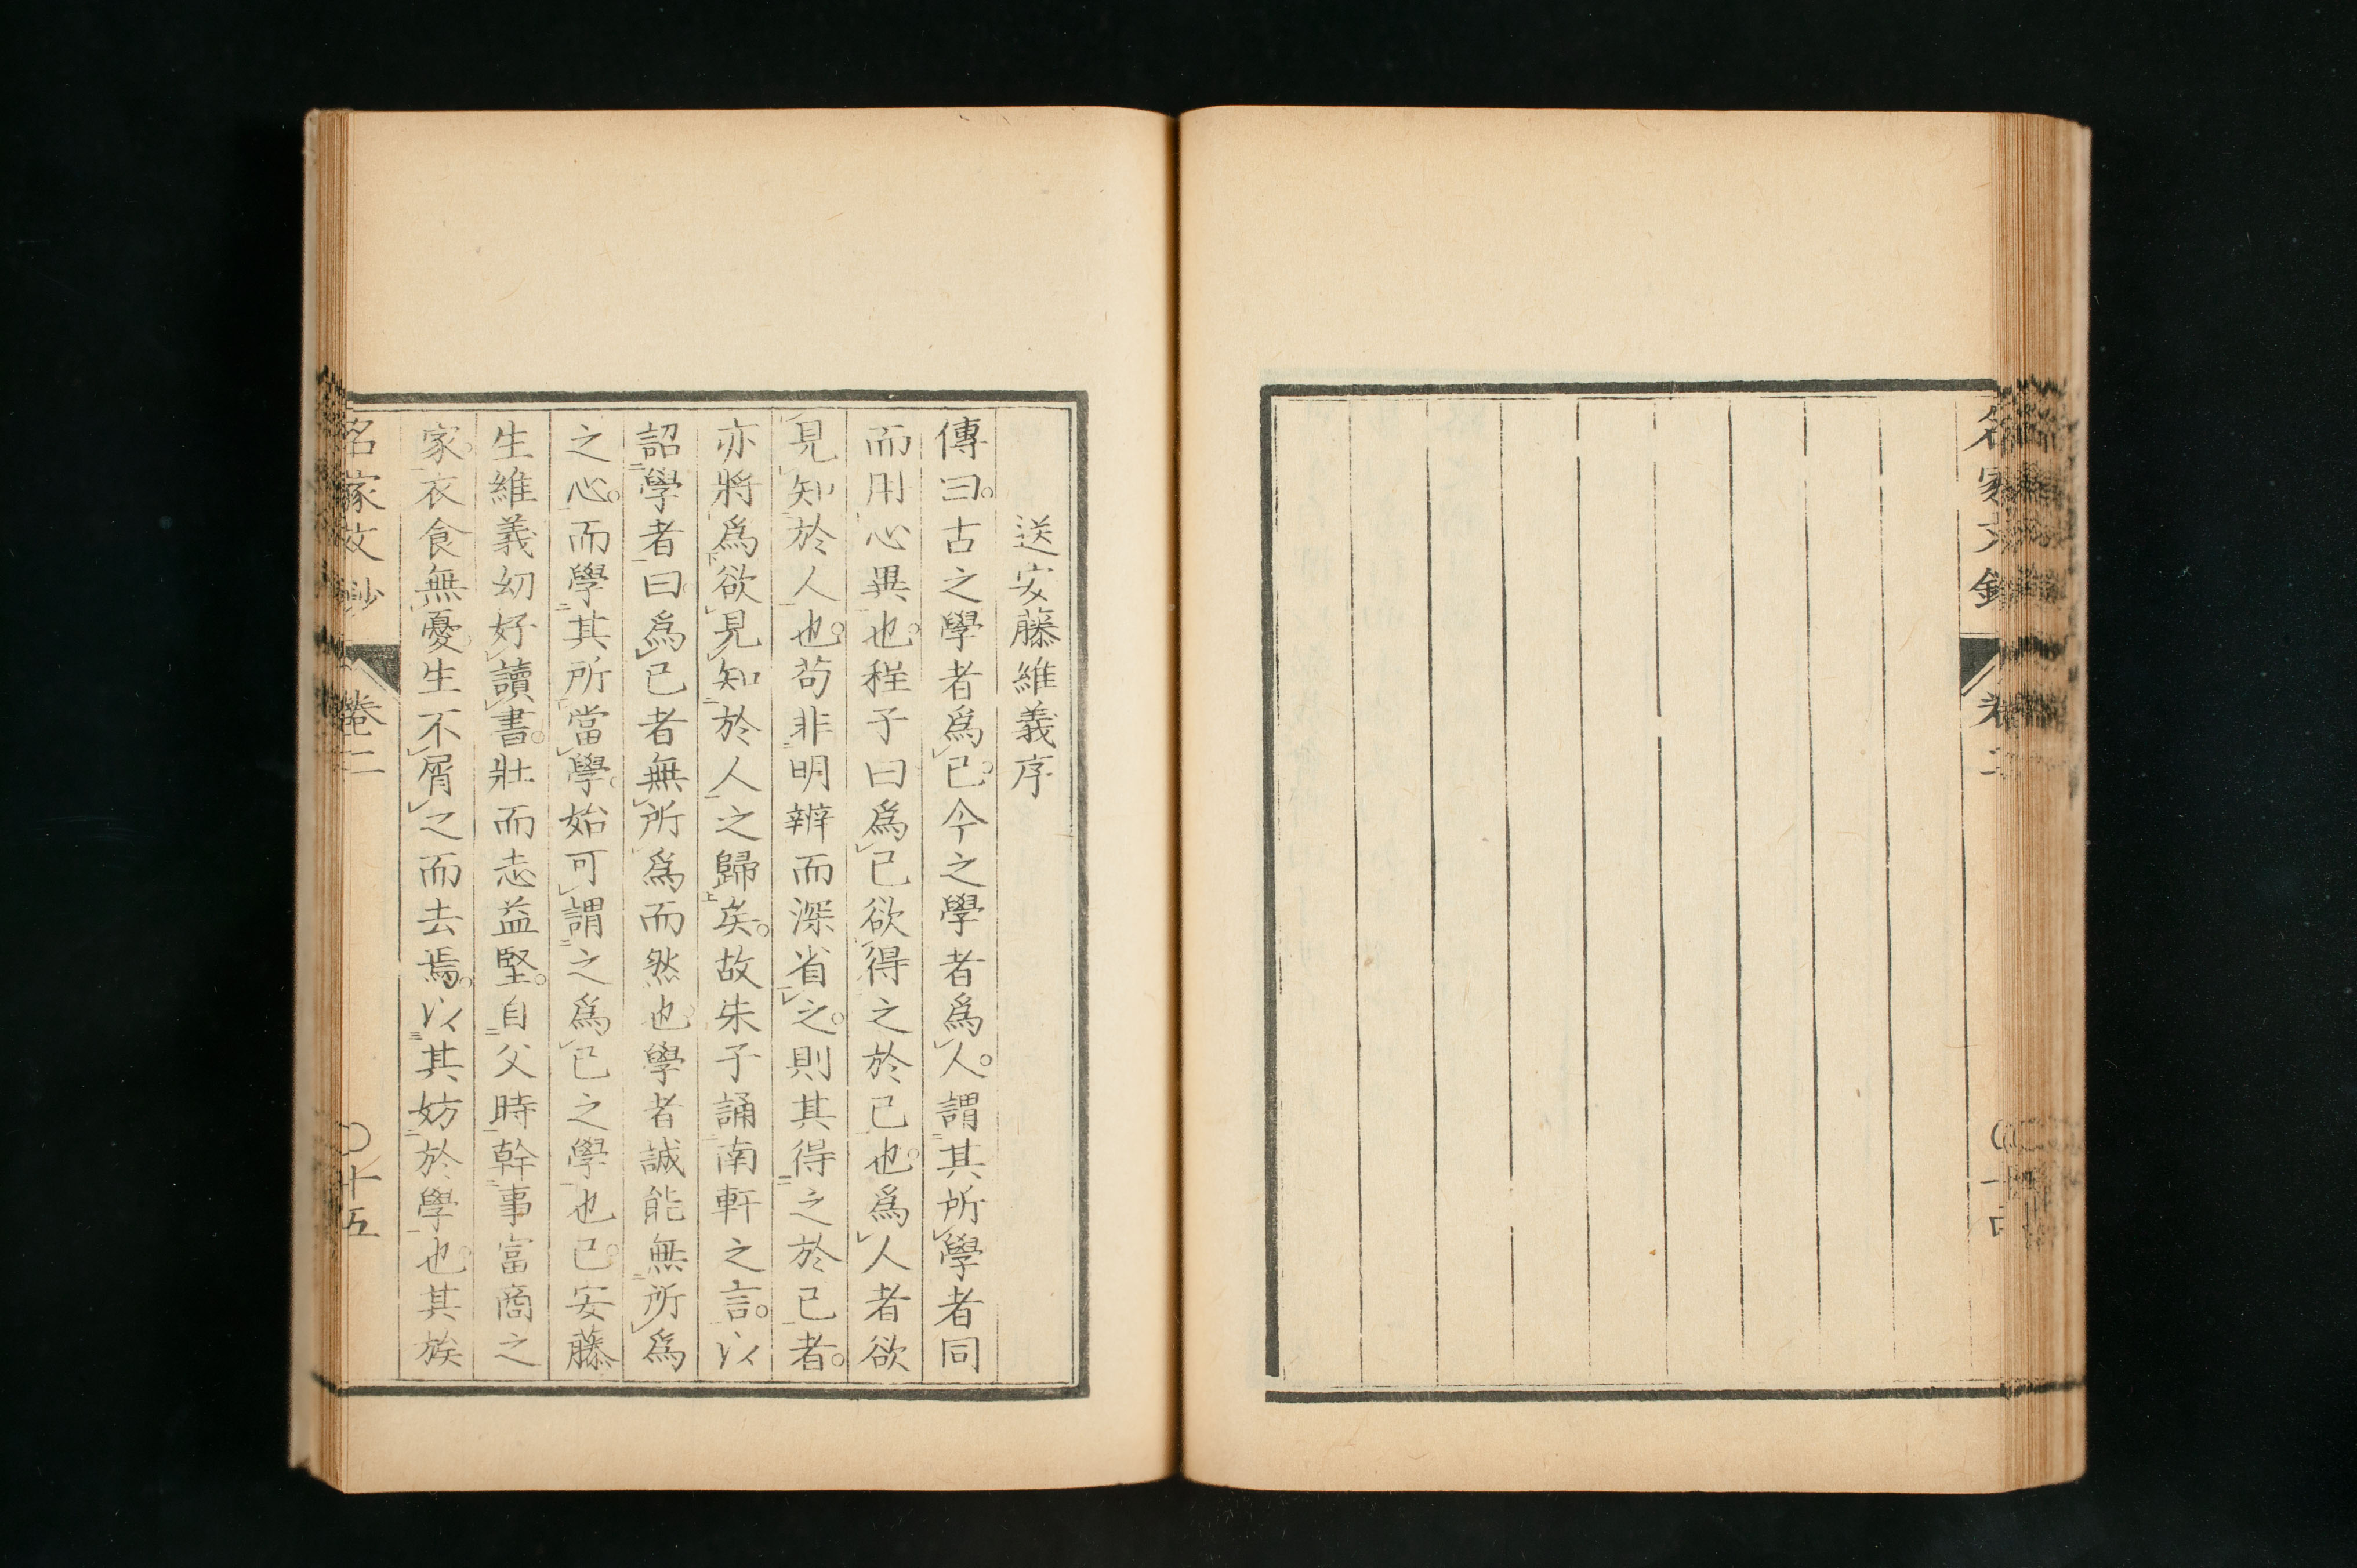 送安藤維義序
傳曰。古之學者爲己。今之學者爲人。謂其所學者同
而用心異也。程子曰爲己欲得之於己也。爲人者欲
見知於人也。苟非明辨而深省之。則其得之於己者。
亦將爲欲見知於人之歸矣。故朱子誦南軒之言。以
詔學者曰爲己者無所爲而然也。學者誠能無所爲
之心。而學其所當學。始可謂之爲己之學也已。安藤
生維義幼好讀書。壯而志益堅。自父時幹事富商之
家。衣食無憂。生不屑之而去焉。以其妨於學也。其族
名家文鈔 卷二 〇十五
名家文鈔 卷二